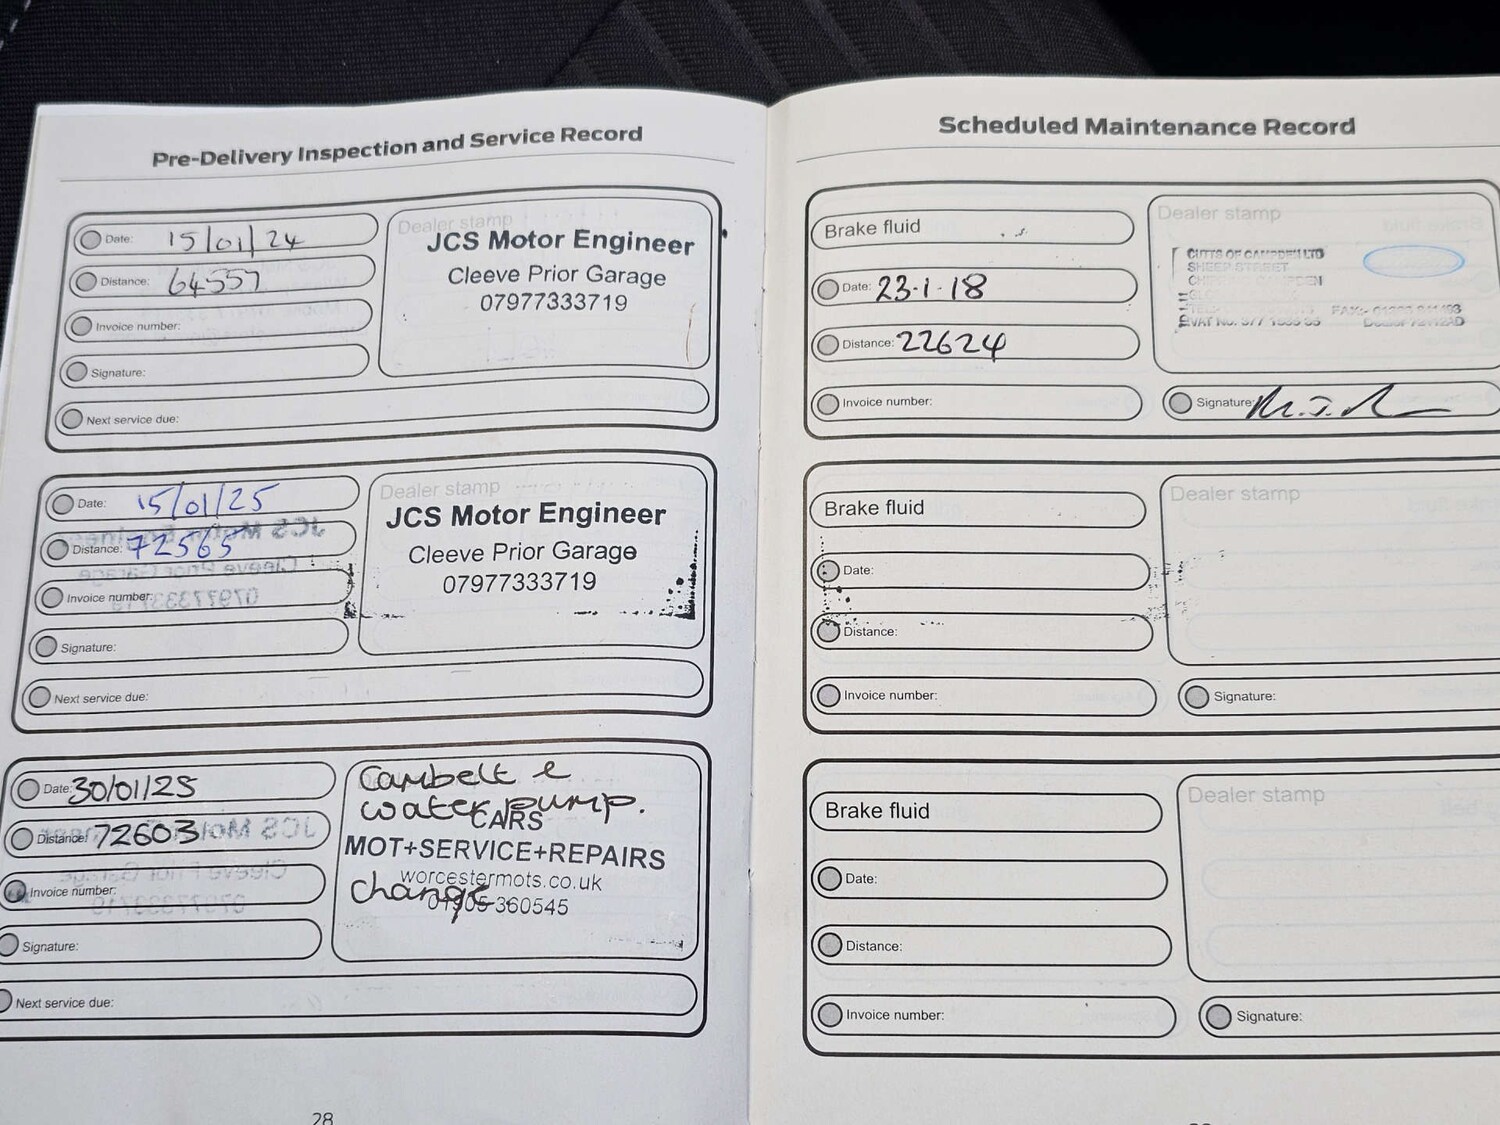 Pre-Delivery Inspection and Service Record
Date: 15/01/24
Distance: 64557
Invoice number:
Signature:
Next service due:
Dealer stamp
JCS Motor Engineer
Cleeve Prior Garage
07977333719
Date: 15/01/25
Distance: 72565
Invoice number:
Signature:
Next service due:
Dealer stamp
JCS Motor Engineer
Cleeve Prior Garage
07977333719
Date: 30/01/25
Distance: 72603
Invoice number:
Signature:
Next service due:
Cambelt &
water pump.
CARS
MOT+SERVICE+REPAIRS
worcestermots.co.uk
change
01905 360545
28
Scheduled Maintenance Record
Brake fluid
Date: 23-1-18
Distance: 22624
Invoice number:
Dealer stamp
CUTTS OF CAMPDEN LTD
SHEEP STREET
Signature:
Brake fluid
Date:
Distance:
Invoice number:
Dealer stamp
Signature:
Brake fluid
Date:
Distance:
Invoice number:
Dealer stamp
Signature: